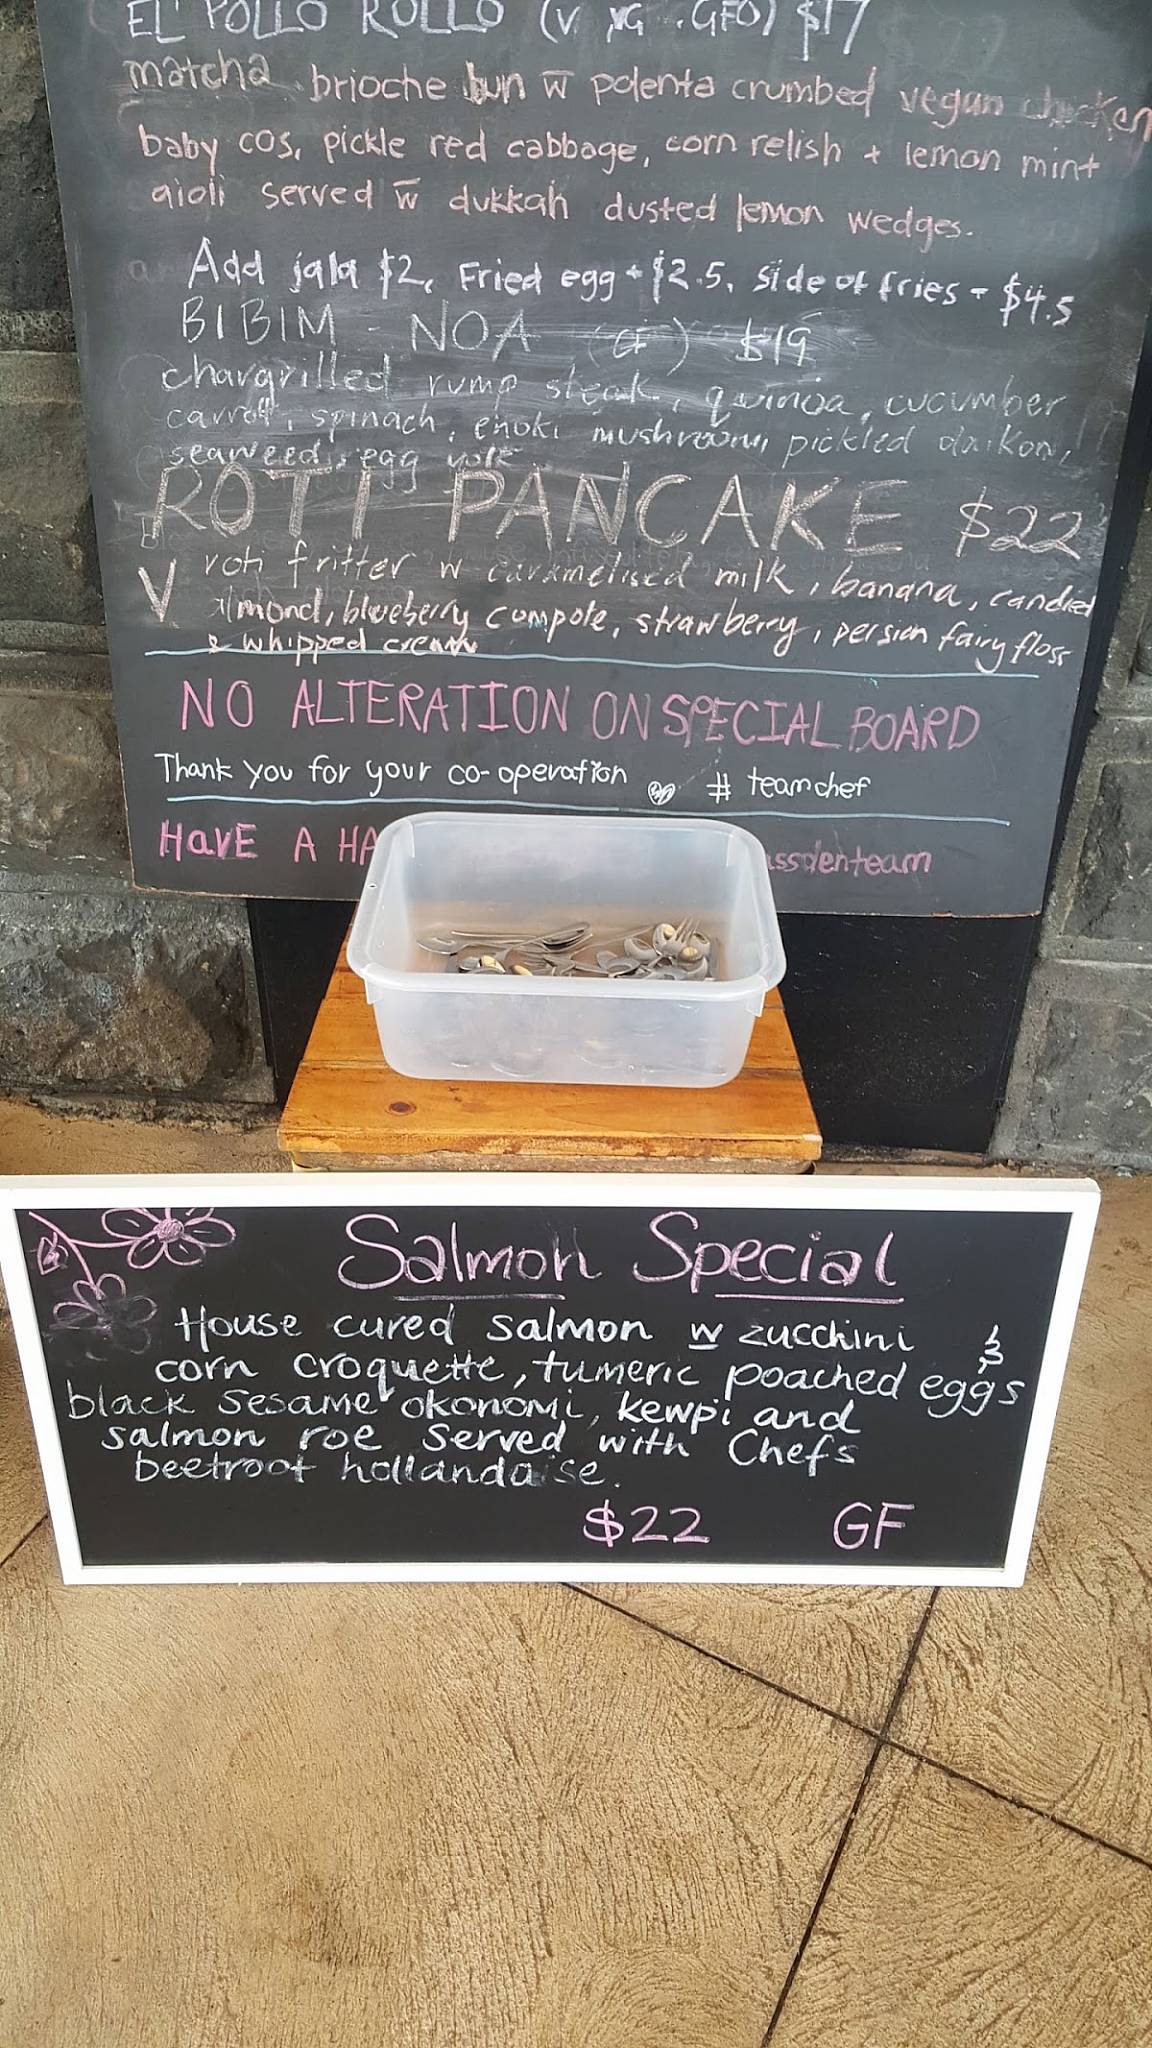 EL' POLLO ROLLO (V, VG, GFO) $17
matcha brioche bun w polenta crumbed vegan chicken
baby cos, pickle red cabbage, corn relish + lemon mint
aioli served w dukkah dusted lemon wedges.
Add jala $2, Fried egg - $2.5, side of fries - $4.5
BIBIM NOA $19
chargrilled rump steak, quinoa, cucumber
carrot, spinach, enoki mushroom, pickled daikon,
seaweed, egg yolk
ROTI PANCAKE $22
V roti fritter w caramelised milk, banana, candied
almond, blueberry compote, strawberry, persian fairy floss
& whipped cream
NO ALTERATION ON SPECIAL BOARD
Thank you for your co-operation # teamchef
HAVE A HA ssdenteam
Salmon Special
House cured salmon w zucchini &
corn croquette, tumeric poached eggs
black sesame okonomi, kewpi and
salmon roe served with Chefs
beetroot hollandaise.
$22 GF